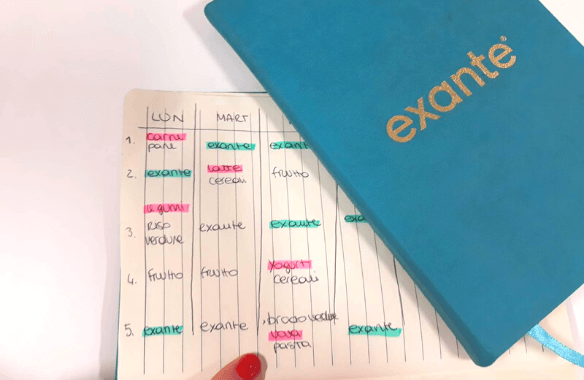 exante®
LUN MART
1. carne exante exant
pane
2. exante latte frutto
cereali
legumi
3. riso exante exante exa
verdure
4. frutto frutto yogurt
cereali
5. exante exante brodo verdure exante
uova
pasta